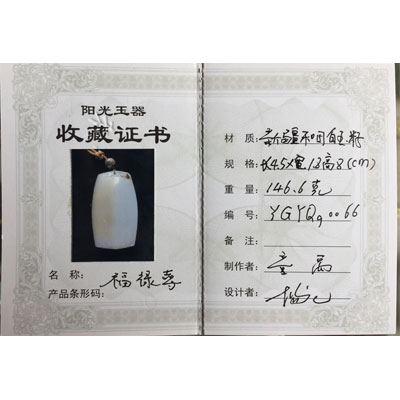 阳光玉器
收藏证书
名称：福禄寿
产品条形码：
材质：新疆和田白玉籽
规格：长4.5X宽1.3高8(cm)
重量：146.6克
编号：YGYQg0066
备注：
制作者：
设计者：